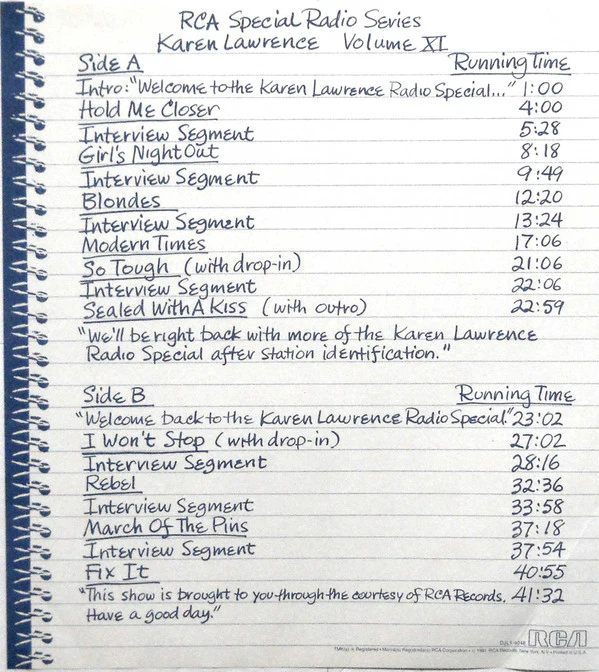 RCA Special Radio Series
Karen Lawrence Volume XI
Side A Running Time
Intro: "Welcome to the Karen Lawrence Radio Special..." 1:00
Hold Me Closer 4:00
Interview Segment 5:28
Girl's Night Out 8:18
Interview Segment 9:49
Blondes 12:20
Interview Segment 13:24
Modern Times 17:06
So Tough (with drop-in) 21:06
Interview Segment 22:06
Sealed With A Kiss (with outro) 22:59
"We'll be right back with more of the Karen Lawrence
Radio Special after station identification."
Side B Running Time
"Welcome back to the Karen Lawrence Radio Special" 23:02
I Won't Stop (with drop-in) 27:02
Interview Segment 28:16
Rebel 32:36
Interview Segment 33:58
March Of The Pins 37:18
Interview Segment 37:54
Fix It 40:55
"This show is brought to you through the courtesy of RCA Records. 41:32
Have a good day."
RCA